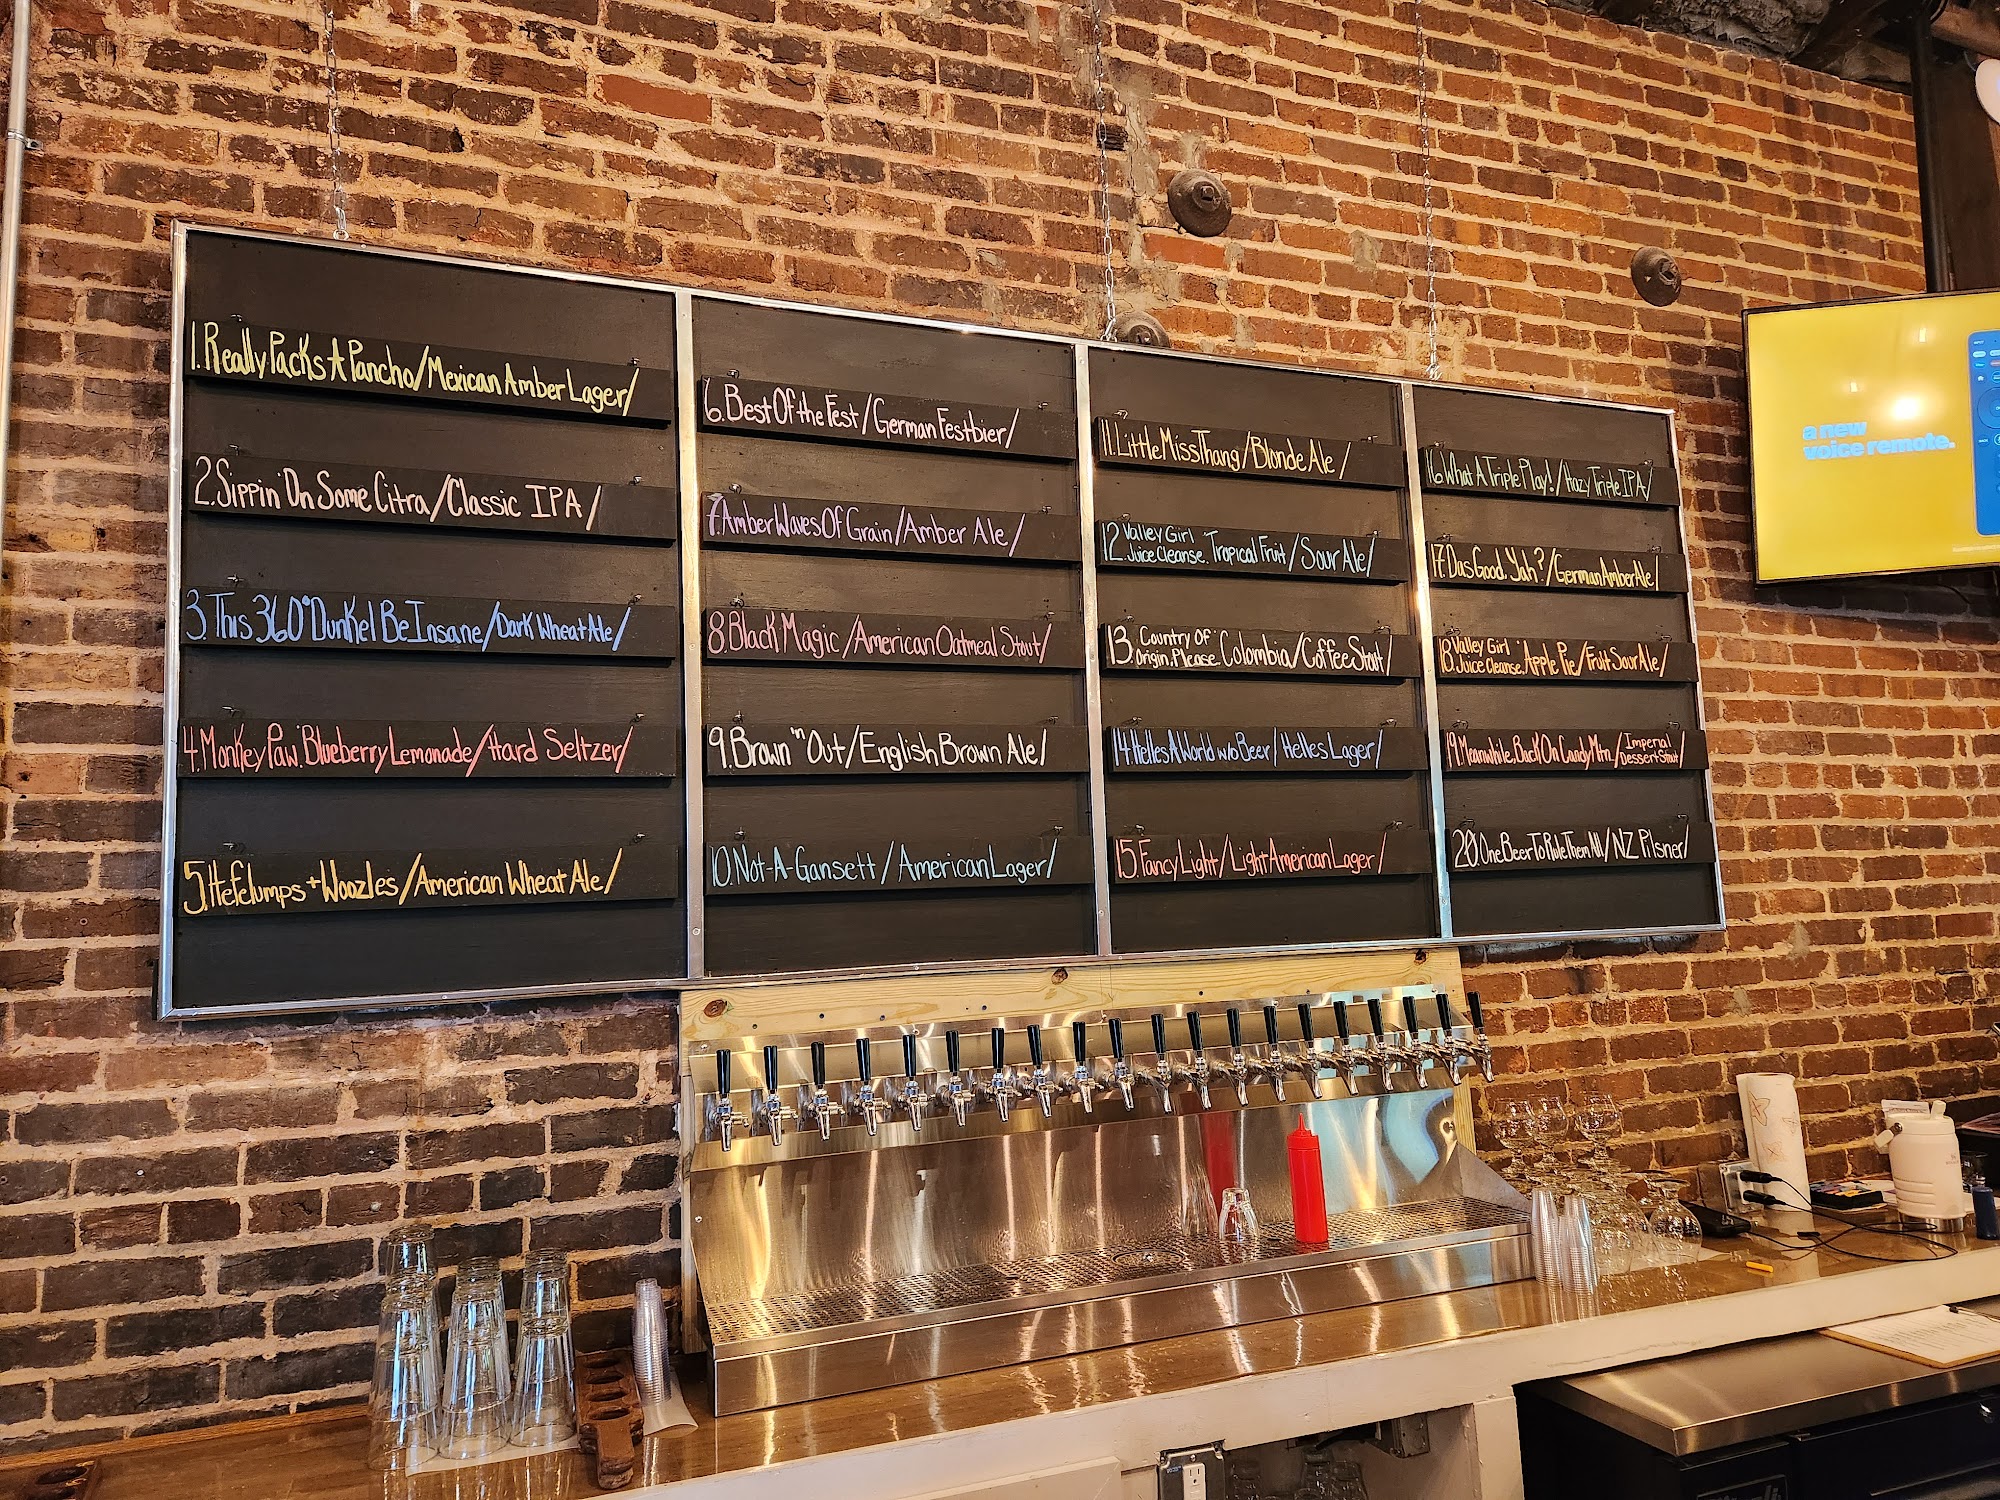 1. Really Packs A Pancho/Mexican Amber Lager/
2. Sippin' On Some Citra/Classic IPA/
3. This 360° Dunkel Be Insane/Dark Wheat Ale/
4. Monkey Paw: Blueberry Lemonade/Hard Seltzer/
5. Hefelumps + Woozles/American Wheat Ale/
6. Best Of the Fest/German Festbier/
7. Amber Waves Of Grain/Amber Ale/
8. Black Magic/American Oatmeal Stout/
9. Brown "n" Out/English Brown Ale/
10. Not-A-Gansett/American Lager/
11. Little Miss Thang/Blonde Ale/
12. Valley Girl Juice Cleanse: Tropical Fruit/Sour Ale/
13. Country Of Origin, Please: Colombia/Coffee Stout/
14. Helles A World w/o Beer/Helles Lager/
15. Fancy Light/Light American Lager/
16. What A Triple Play!/Hazy Triple IPA/
17. Das Good, Yah?/German Amber Ale/
18. Valley Girl Juice Cleanse: Apple Pie/Fruit Sour Ale/
19. Meanwhile, Back On Candy Mtn./Imperial Dessert Stout/
20. One Beer To Rule Them All/NZ Pilsner/
a new
voice remote.